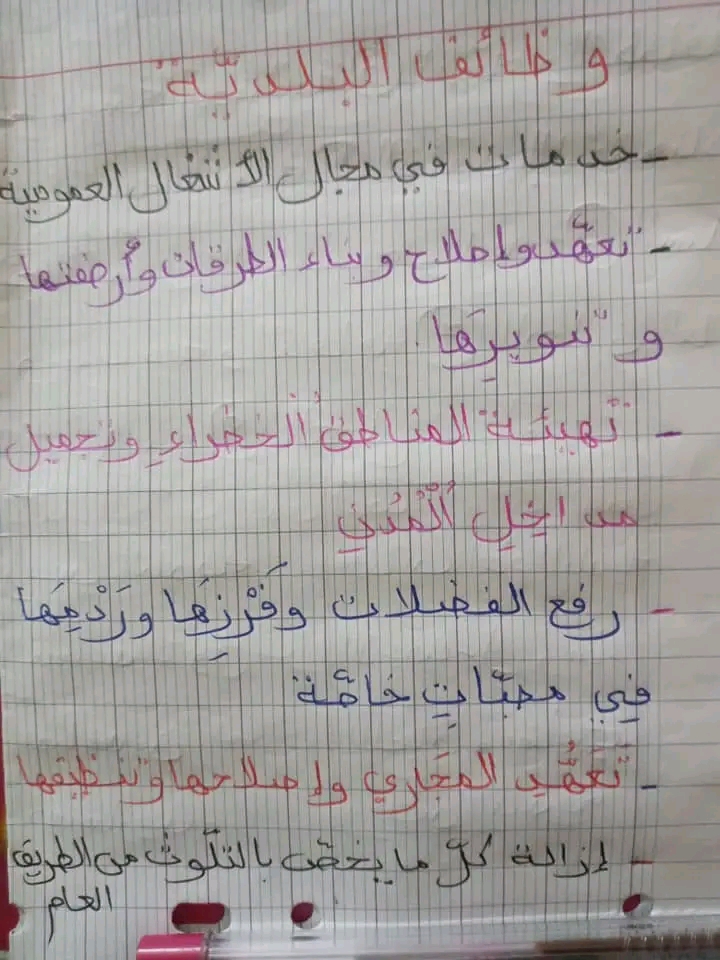 وظائف البلديّة
- خدمات في مجال الأشغال العمومية
- تعهّد وإصلاح وبناء الطرقات وأرصفتها
و تنويرِهَا.
- تهيئة المناطق الخضراءِ وتجميل
مداخِلِ الْمُدُنِ
- رفع الفضلات وَفَرْزِهَا ورَدْمِهَا
فِي مصبّاتٍ خاصّة
- تَعَهُّد المجَاري وإصلاحها وتنظيفها
- إزالة كلّ ما يخصّ بالتلّوث من الطريق
العام